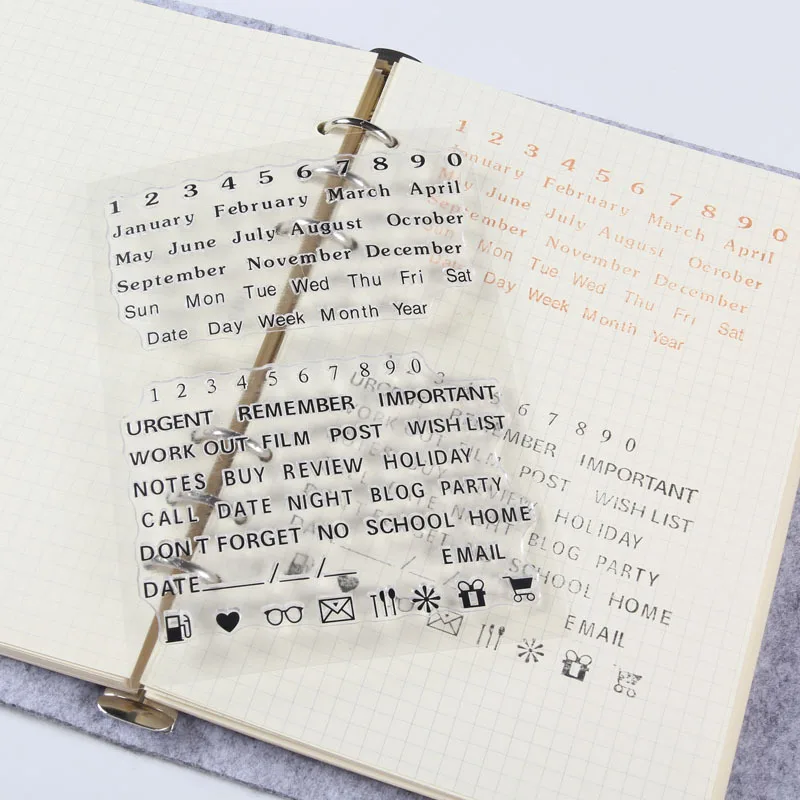 1 2 3 4 5 6 7 8 9 0
January February March April
May June July August Ocrober
September November December
Sun Mon Tue Wed Thu Fri Sat
Date Day Week Month Year
1 2 3 4 5 6 7 8 9 0
URGENT REMEMBER IMPORTANT
WORK OUT FILM POST WISH LIST
NOTES BUY REVIEW HOLIDAY
CALL DATE NIGHT BLOG PARTY
DON'T FORGET NO SCHOOL HOME
DATE____/__/__ EMAIL
1 2 3 4 5 6 7 8 9 0
January February March April
May June July August Ocrober
September November December
Mon Tue Wed Thu Fri Sat
Date Day Week Month Year
6 7 8 9 0
URGENT REMEMBER IMPORTANT
WORK OUT FILM POST WISH LIST
HOLIDAY
BLOG PARTY
SCHOOL HOME
EMAIL